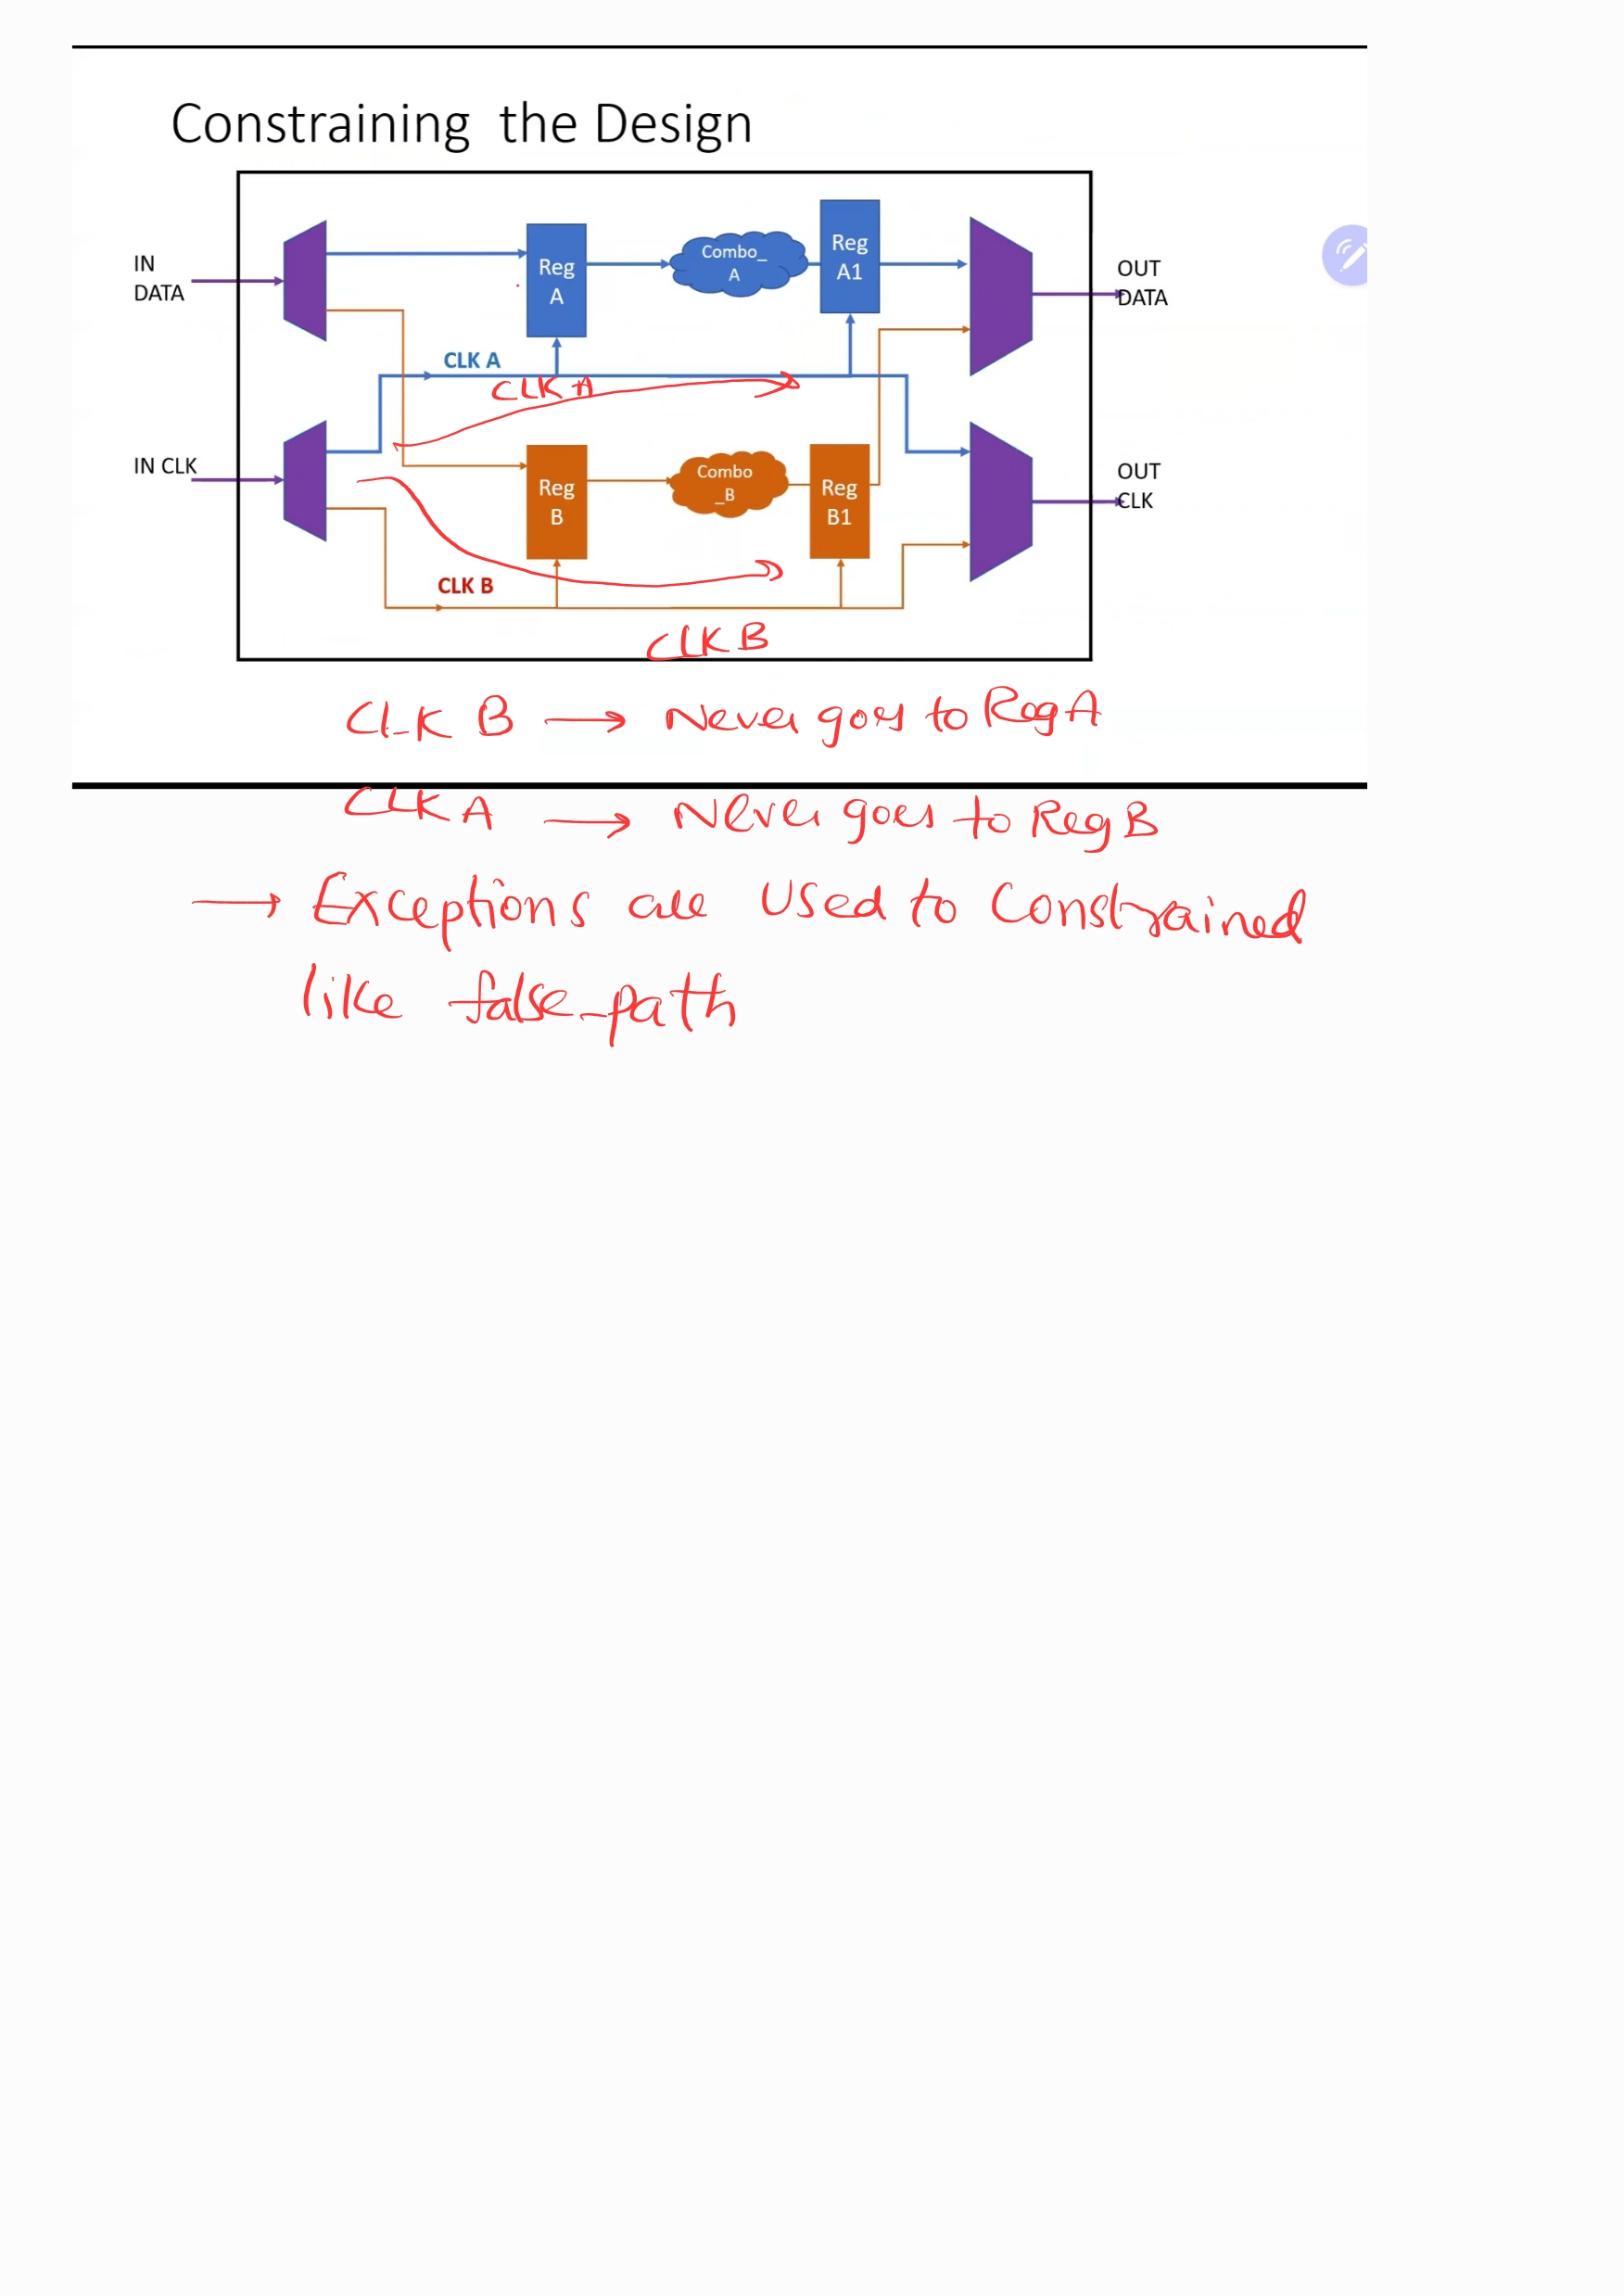 Constraining the Design
IN
DATA
Reg
A
Combo_
A
Reg
A1
OUT
DATA
CLK A
CLK A
IN CLK
Reg
B
Combo
_B
Reg
B1
OUT
CLK
CLK B
CLK B
CLK B → Never goes to Reg A
CLK A → Never goes to Reg B
→ Exceptions are Used to Constrained
like false_path